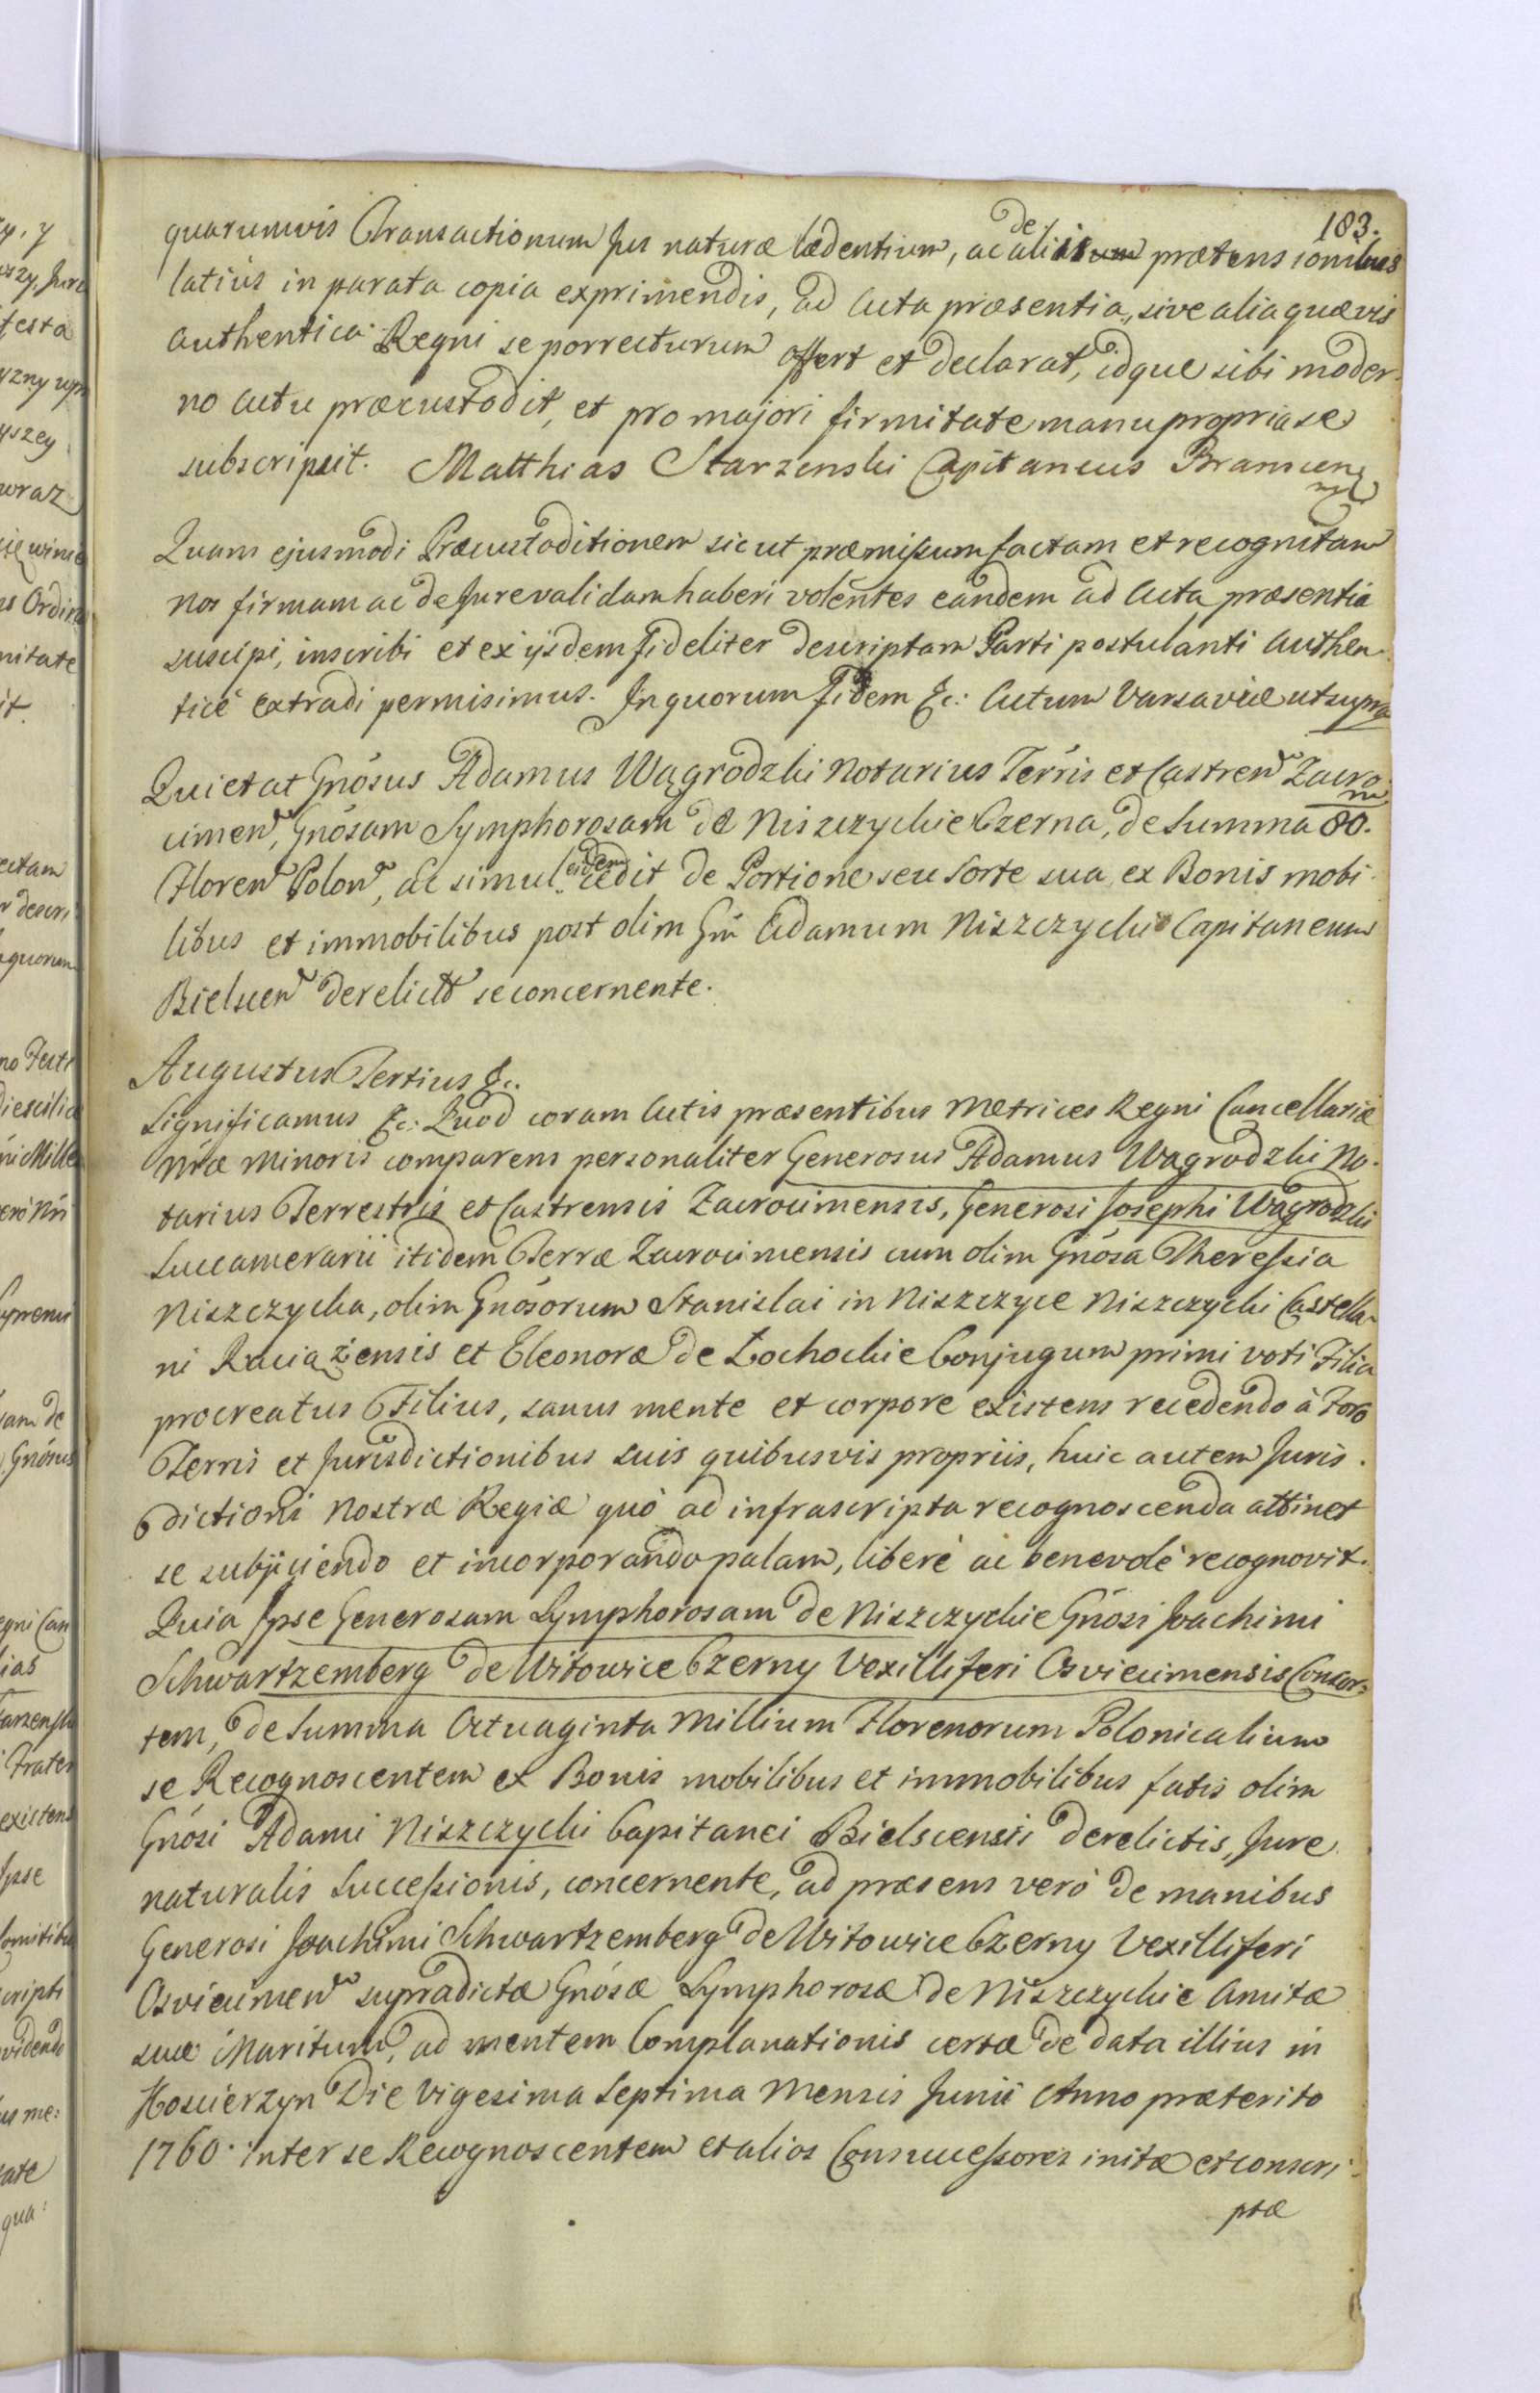 183.
quarumvis Transactionum Jus naturæ lædentium, ac de aliis prætensionibus
latiùs in parata copia exprimendis, ad Acta præsentia, sive alia quævis
authentica Regni se porrecturum offert et declarat, idque sibi moder-
no Actu præcustodit, et pro majori firmitate manu propria se
subscripsit. Matthias Starzenski Capitaneus Branscen
mp
Quam ejusmodi Præcustoditionem sicut præmissum factam et recognitam
nos firmam ac de Jure validam haberi volentes eandem ad Acta præsentia
suscipi, inscribi et ex ijsdem fideliter descriptam Parti postulanti authen-
ticè extradi permisimus. In quorum Fidem &c: Actum Varsaviæ ut supra
Quietat Gnosus Adamus Wągrodzki Notarius Terris et Castren Zacro-
cimen, Gnosam Symphorosam de Niszczyckie Czerna, de Summa 80. m
Floren Polon, ac simul eidem cedit de Portione seu Sorte sua ex Bonis mobi-
libus et immobilibus post olim Gm Adamum Niszczycki Capitaneum
Bielscen derelict se concernente.
Augustus Tertius &c.
Significamus &c: Quod coram Actis præsentibus Metrices Regni Cancellariæ
Nræ Minoris comparens personaliter Generosus Adamus Wągrodzki No-
tarius Terrestris et Castrensis Zacrocimensis, Generosi Josephi Wągrodzki
Succamerarii itidem Terræ Zacrocimensis cum olim Gnosa Theressia
Niszczycka, olim Gnosorum Stanislai in Niszczyce Niszczycki Castella-
ni Raciążensis et Eleonoræ de Łochockie Conjugum primi voti Filia
procreatus Filius, sanus mente et corpore existens recedendo à Foro
Terris et Jurisdictionibus suis quibusvis propriis, huic autem Juris-
dictioni Nostræ Regiæ quò ad infrascripta recognoscenda attinet
se subjiciendo et incorporando palam, liberè ac benevolè recognovit.
Quia Ipse Generosam Symphorosam de Niszczyckie Gnosi Joachimi
Schwartzemberg de Witowice Czerny Vexilliferi Osviecimensis Consor-
tem, de Summa Octuaginta Millium Florenorum Polonicalium
se Recognoscentem ex Bonis mobilibus et immobilibus fatis olim
Gnosi Adami Niszczycki Capitanei Bielscensis derelictis, Jure
naturalis Successionis, concernente, ad præsens verò de manibus
Generosi Joachimi Schwartzemberg de Witowice Czerny Vexilliferi
Osviecimen supradictæ Gnosæ Symphorosæ de Niszczyckie Amitæ
suæ Maritum, ad mentem Complanationis certæ de data illius in
Koscierzyn Die Vigesima Septima Mensis Junii Anno præterito
1760. inter se Recognoscentem et alios Consuccessores initæ et conscri-
ptæ